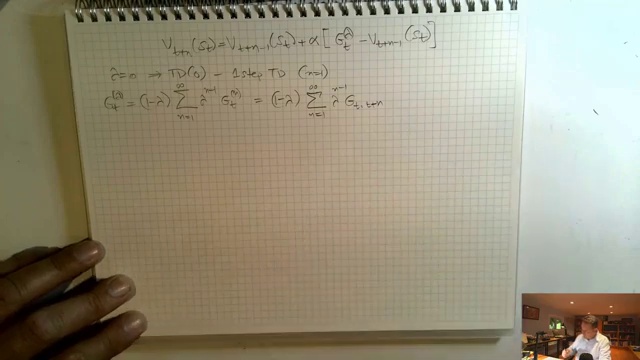 V_{t+n}(S_t) = V_{t+n-1}(S_t) + α [ G_t^λ - V_{t+n-1}(S_t) ]
λ=0 → TD(0) - 1 step TD (n=1)
G_t^{(λ)} = (1-λ) ∑_{n=1}^{∞} λ^{n-1} G_t^{(n)} = (1-λ) ∑_{n=1}^{∞} λ^{n-1} G_{t,t+n}